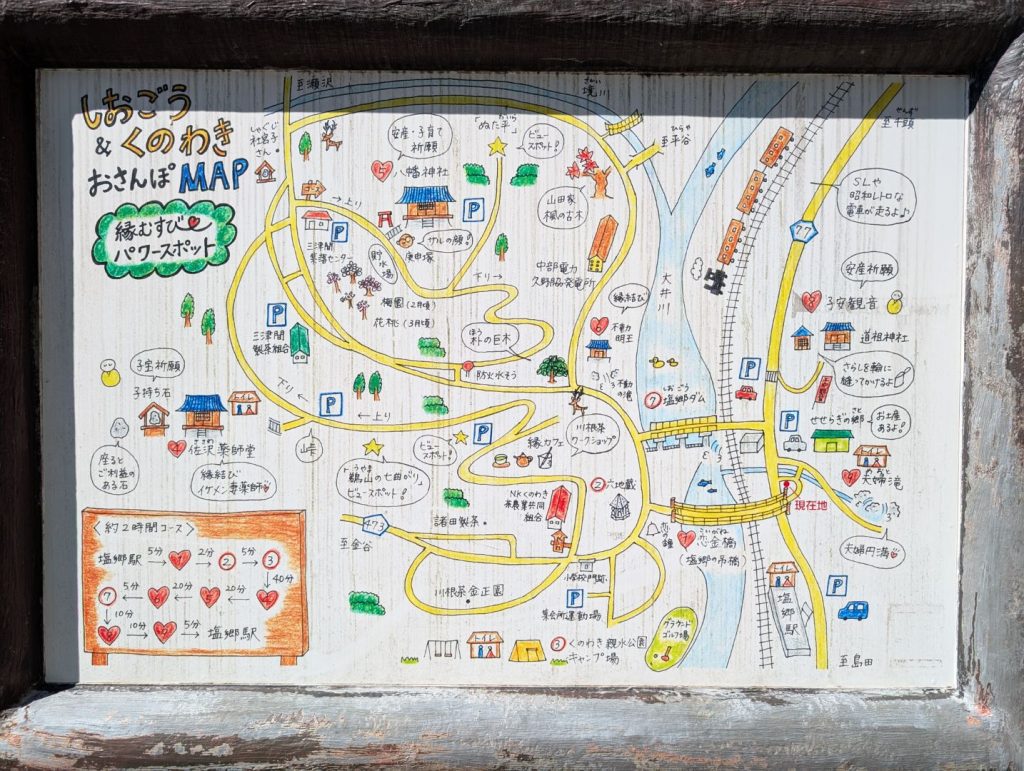 しおごう
& くのわき
おさんぽMAP
縁むすび
パワースポット
至瀬沢
しゃぐじ
社宮子
さん
安産・子育て
祈願
八幡神社
「ぬた平」
ビュー
スポット!
さかい
境川
ひらや
至平谷
せんず
至千頭
SLや
昭和レトロな
電車が走るよ♪
77
→上り
三津間
集落センター
P
P
サルの顔!
庚申塚
貯水場
梅園(2月頃)
花桃(3月頃)
下り→
山田家
楓の古木
中部電力
久野脇発電所
大井川
安産祈願
子安観音
道祖神社
さらしを輪に
縫ってかけるよ
縁結び
6
不動
明王
不動
の滝
ほう
朴の巨木
防火水そう
P
三津間
製茶組合
下り
P
←上り
峠
子宝祈願
子持ち石
トイレ
座ると
ご利益の
ある石
佐沢薬師堂
縁結び
イケメン妻薬師
ビュー
スポット!
鵜山の七曲がり
ビュースポット!
P
縁カフェ
川根茶
ワークショップ
しおごう
7 塩郷ダム
P
P
せせらぎの郷
お土産
あるよ!
トイレ
夫婦滝
夫婦円満
現在地
2 六地蔵
NKくのわき
茶農業共同
組合
恋の鐘
1
恋金橋
(塩郷の吊橋)
諸田製茶
473
至金谷
川根茶金正園
小学校門跡
P
集会所運動場
トイレ
3 くのわき親水公園
キャンプ場
グラウンド
ゴルフ場
トイレ
塩郷駅
P
至島田
<約2時間コース>
塩郷駅 5分 1 2分 2 5分 3
40分
7 5分 20分 20分
10分 10分 5分 塩郷駅